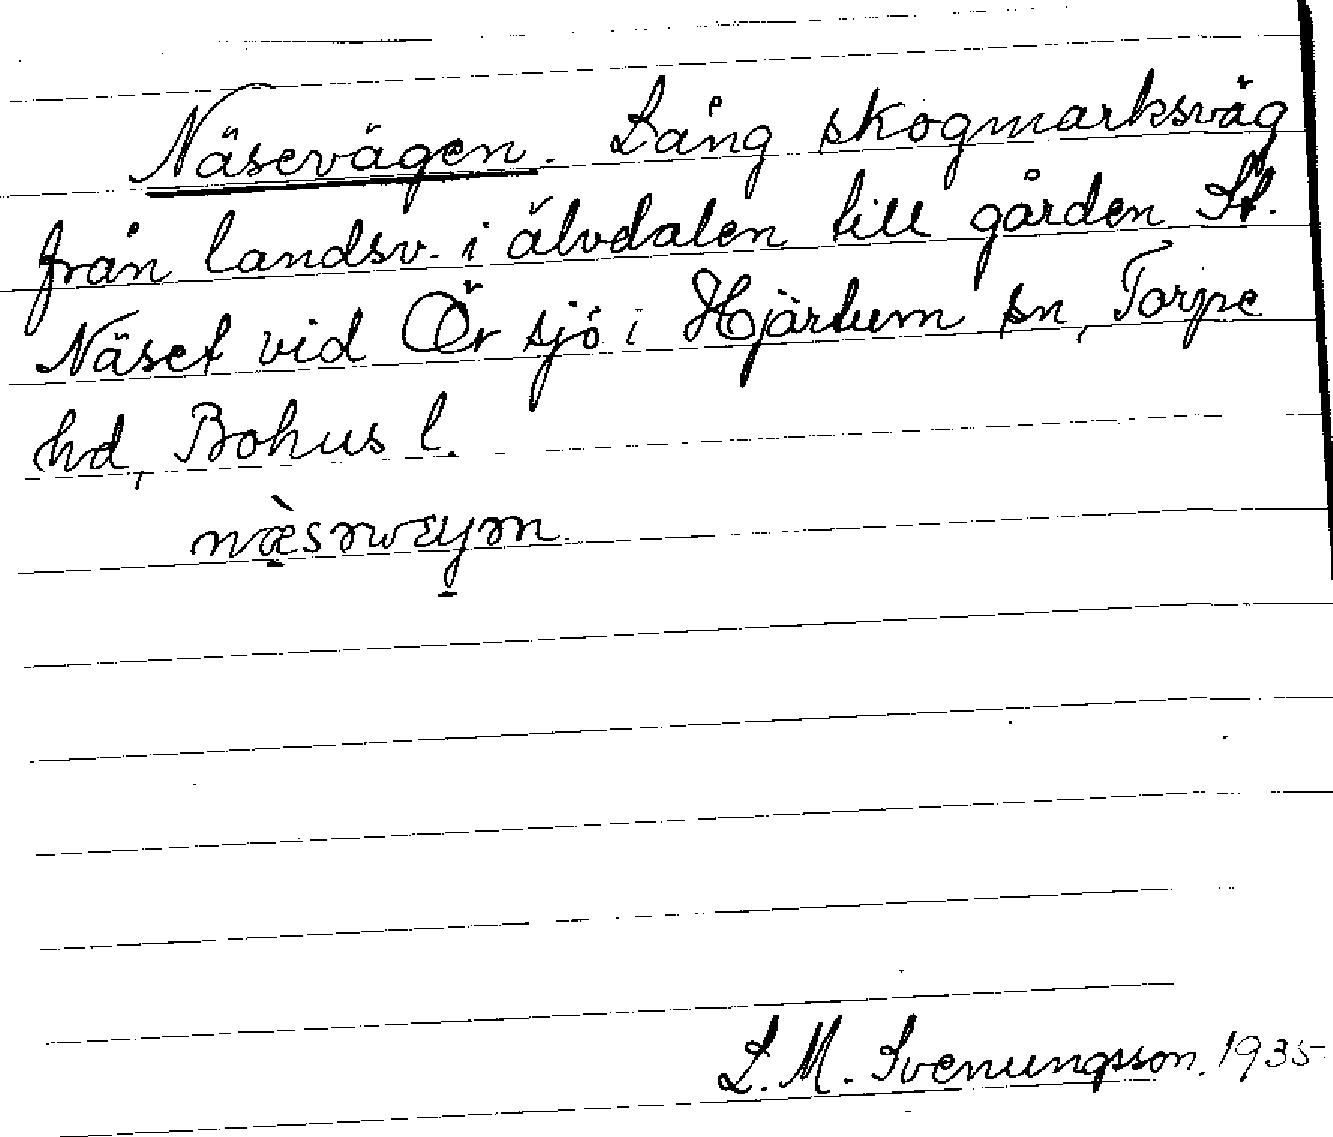 Näsevägen. Lång skogmarksväg
från landsv. i älvdalen till gården St.
Näset vid Ör sjö i Hjärtum sn, Torpe
hd, Bohus l.
L. M. Svenungsson. 1935